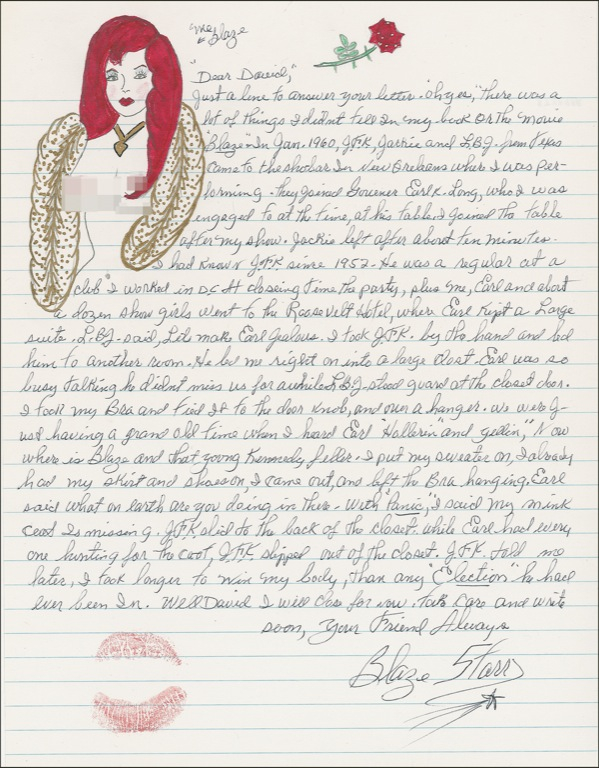 "me
Blaze
"Dear David,"
Just a line to answer your letter. "Oh yes," there was a
lot of things I didnt tell In my book OR the Movie
"Blaze" In Jan. 1960, J.F.K, Jackie and L.B.J. from Texas
came to the shobar In New Orleans where I was per-
forming. they joined Govener Earl K. Long, who I was
engaged to at the time, at his table. I joined the table
after my show. Jackie left after about ten minutes.
I had known J.F.K since 1952. He was a regular at a
club I worked in D.C. At closeing time the party, plus me, Earl and about
a dozen show girls went to the Roosevelt Hotel, where Earl kept a Large
suite. L.B.J. said, Lets make Earl Jealous. I took J.F.K. by the hand and led
him to another room. He led me right on into a large closet. Earl was so
busy talking he didnt miss us for awhile L.B.J. stood guard at the closet door.
I took my Bra and tied It to the door knob, and over a hanger. we were J-
ust having a grand old time when I heard Earl "Hollerin" and yellin," Now
where is Blaze and that young Kennedy feller. I put my sweater on, I already
had my skirt and shoes on, I came out, and left the Bra hanging. Earl
said what on earth are you doing in there. With "Panic," I said my mink
coat Is missing. J.F.K slid to the back of the closet. while Earl had every
one hunting for the coat, J.F.K. slipped out of the closet. J.F.K. told me
later, I took longer to win my body, than any "Election" he had
ever been In. Well David I will close for now. take care and write
soon, Your Friend Always
Blaze Starr